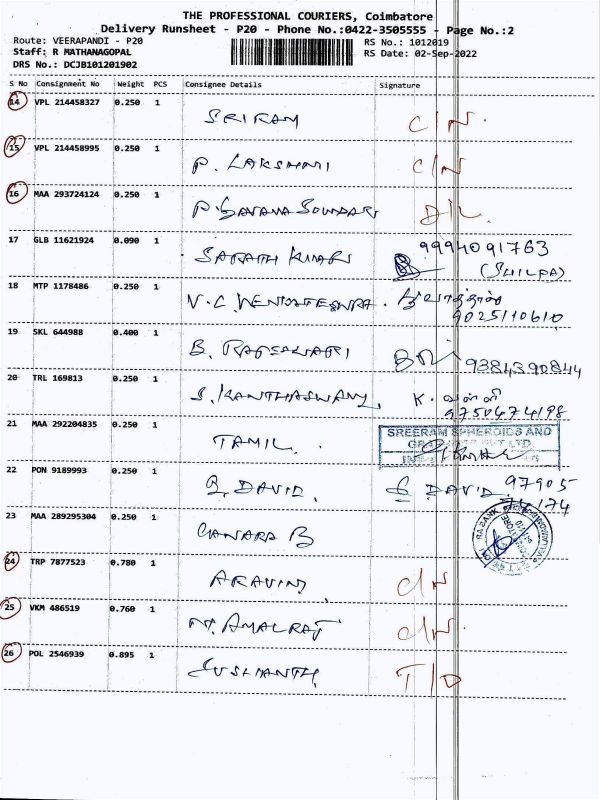 THE PROFESSIONAL COURIERS, Coimbatore
Delivery Runsheet - P20 - Phone No.:0422-3505555 - Page No.:2
Route: VEERAPANDI - P20 RS No.: 1012019
Staff: R MATHANAGOPAL RS Date: 02-Sep-2022
DRS No.: DCJB101201902
S No Consignment No Weight PCS Consignee Details Signature
14 VPL 214458327 0.250 1 SRIRAM C/N.
15 VPL 214458995 0.250 1 P. LAKSHMI C/N
16 MAA 293724124 0.250 1 P. SAVANA SOUNDARI D/L.
17 GLB 11621924 0.090 1 SARATH KUMAR 9994091763
(SHILPA)
18 MTP 1178486 0.250 1 V.C. VENKATESWRA.
9025110610
19 SKL 644988 0.400 1 B. RAJESWARI 9384590844
20 TRL 169813 0.250 1 S. KANTHASWAMY K. வள்ளி
9750474198
21 MAA 292204835 0.250 1 TAMIL. SREERAM SPHEROIDS AND
22 PON 9189993 0.250 1 R. DAVID. DAVID. 97905
74174
23 MAA 289295304 0.250 1 CANARA B
24 TRP 7877523 0.780 1 ARAVIND C/N
25 VKM 486519 0.760 1 M. AMALRAJ C/N.
26 POL 2546939 0.895 1 SUSHANTH T/D